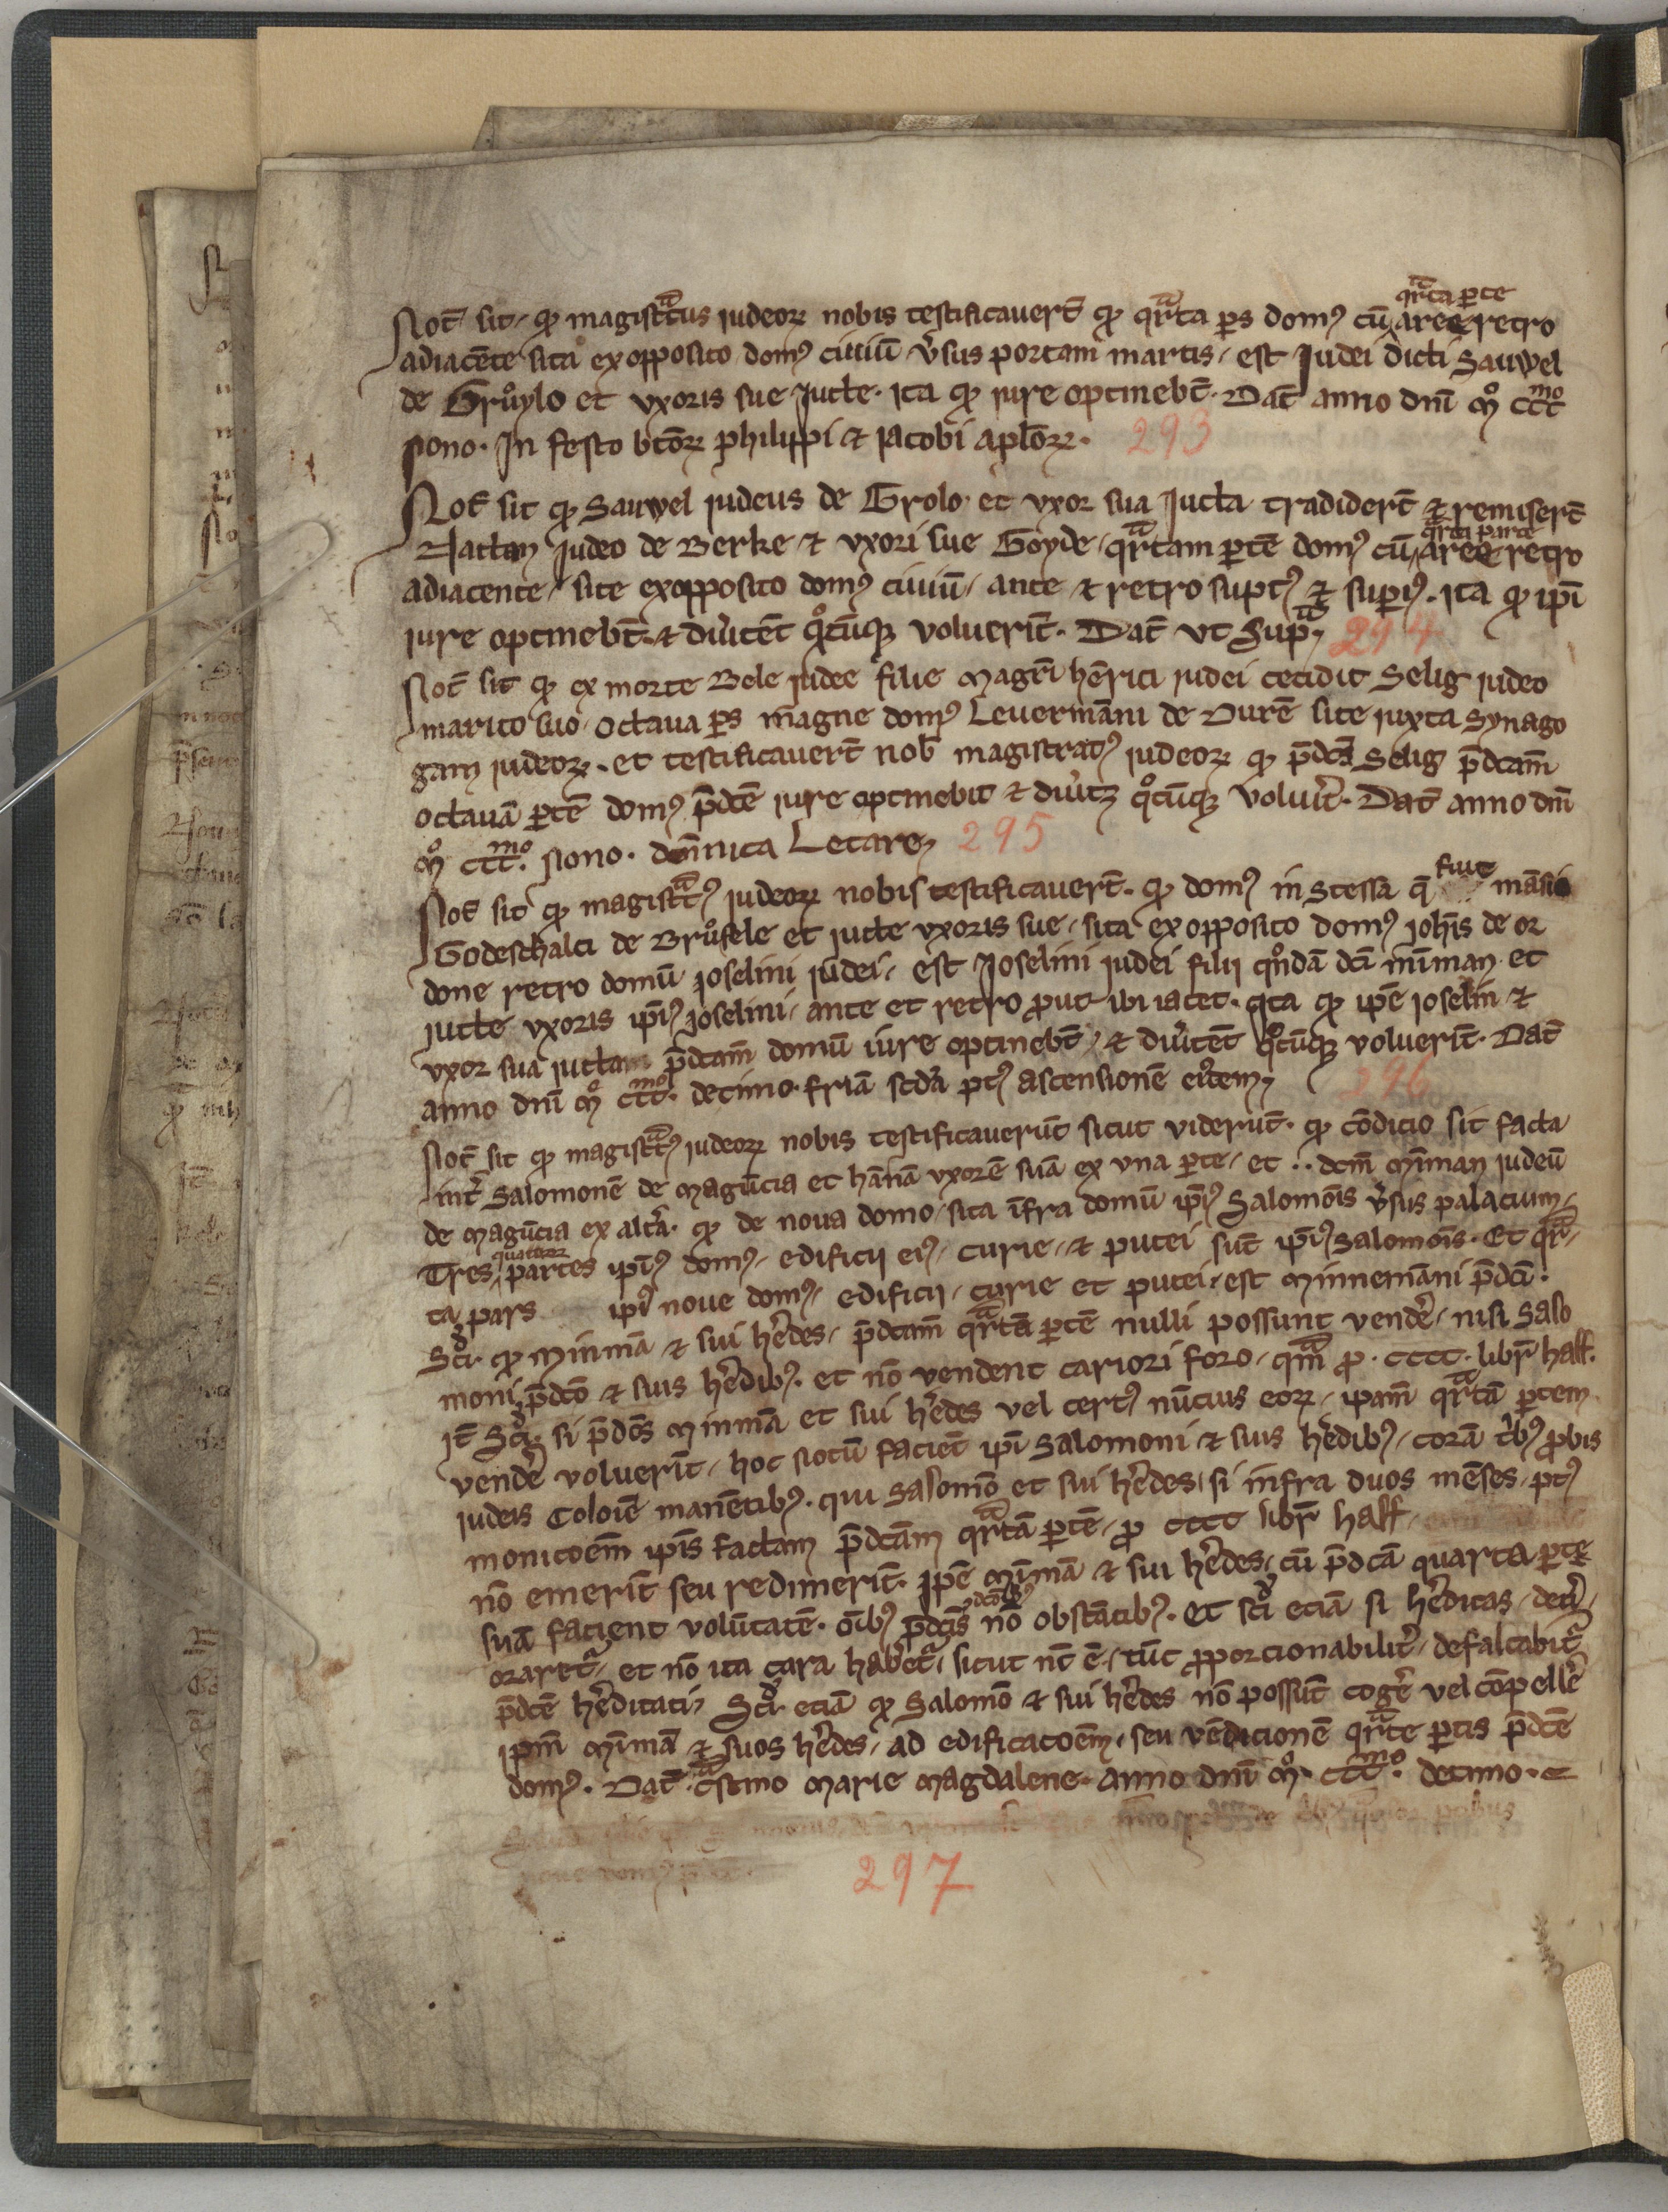 qͣrta ꝑte
Not̄ sit ꝙ magistͣtus iudeoꝝ nobis testificauert̄ ꝙ qͣrta ꝑs domꝰ cū aree retro
adiacēte sita ex opposito domꝰ ciuiū v̓sus portam martis est Iudei dicti Sauwel
de Grůylo et vxoris sue Jutte. ita ꝙ iure optinebt̄. Dat̄ anno dnī mͦ cccͫͦ
nono. In festo btōꝝ philippi ⁊ iacobi aplōꝝ. 293
Not̄ sit ꝙ Sauwel iudeus de Grolo et vxor sua Jutta tradidert̄ ⁊ remisert̄
qͣrta parte
Nattan Judeo de Berke ⁊ vxori sue Goyde qͣrtam ꝑtē domꝰ cū aree retro
adiacente site ex opposito domꝰ ciuiū ante ⁊ retro suptꝰ ⁊ suꝑiꝰ. ita ꝙ ipī
iure optinebt̄ ⁊ diu̓tēt qͦcūqꝫ voluerīt. Dat̄ vt supͣ 294
Not̄ sit ꝙ ex morte Bele iudee filie magr̄i hēnrici iudei cecidit Selig iudeo
marito suo octaua ꝑs magne domꝰ Leuermāni de Durē site iuxta synago
gam iudeoꝝ. et testificauert̄ nob̄ magistratꝰ iudeoꝝ ꝙ p̄dcs̄ Selig p̄dcam̄
octauā ꝑtē domꝰ p̄dcē iure optinebit ⁊ diu̓tꝫ qͦcūqꝫ voluīt. Dat̄ anno dnī
mͦ cccͫͦ. nono. dnīca Letare 295
Not̄ sit ꝙ magistͣtꝰ iudeoꝝ nobis testificauert̄. ꝙ domꝰ in Stessa q̄ fuit māsio
Godeschalci de Brůsele et iutte vxoris sue sita ex opposito domꝰ ioh̄is de or
done retro domū ioselini iudei est Ioselini iudei filij qͦndā dcī minman et
iutte vxoris ipīꝰ ioselini ante et retro prout ibi iacet. ita ꝙ ipē ioselin ⁊
vxor sua iutta p̄dcam̄ domū iure optinebt̄ ⁊ diu̓tēt qͦcūqꝫ voluerīt. Dat̄
anno dnī mͦ cccͫͦ. decimo. friā scdā ptꝰ ascensionē eiꝰdem 296
Not̄ sit ꝙ magistͣtꝰ iudeoꝝ nobis testificauerūt sicut viderūt. ꝙ cōdicio sit facta
int̓ Salomonē de magūcia et hānā vxorē suā ex vna ꝑte et .. dcm̄ minman iudeū
de magūcia ex altā. ꝙ de noua domo sita īfra domū ipīꝰ Salomōis v̓sus palacium
quatuor
Tres partes ipīꝰ domꝰ edificij eiꝰ curie ⁊ putei sūt ipīꝰ Salomōis. Et qͣr
ta pars ipīꝰ noue domꝰ edificij curie et putei est Minnemāni p̄dcī.
Scꝰ ꝙ minmā ⁊ sui h̓edes p̄dcam̄ qͣrtā ꝑtē nulli possunt vend̓e nisi Salo
moni p̄dcō ⁊ suis h̓edibꝰ. et nō vendent cariori foro qͣm pro .cccc. libr̄ hall.
It̄ Scꝰ si p̄dcs̄ minmā et sui h̓edes vel certꝰ nūcius eoꝝ ipam̄ qͣrtā ꝑtem
vend̓e voluerīt hoc notū faciēt ipī Salomoni ⁊ suis h̓edibꝰ corā tribꝰ probis
iudeis Coloiē manētibꝰ. qui Salomō et sui h̓edes si infra duos mēses ptꝰ
monicōem ipīs factam p̄dcām qͣrtā ꝑtē pro cccc libr̄ hall
nō emerīt seu redimerīt. Ipē minmā ⁊ sui h̓edes cū p̄dcā quarta ꝑte
suā facient volūtatē. oībꝰ p̄dcīs nō obstātibꝰ. Et scꝰ eciā si h̓editas det̓i
oraretꝰ et nō ita cara hab̓etꝰ sicut nc̄ ē tūc proporcionabilit̓ defalcabitꝰ
p̄dcē h̓editati. Scꝰ eciā ꝙ Salomō ⁊ sui h̓edes nō possūt cog̓e vel cōpell̓e
ipm̄ minmā ⁊ suos h̓edes ad edificacōem seu vēdicionē qͣrte ꝑtis p̄dcē
domꝰ. Dat̄ cͣstino marie magdalene anno dnī mͦ cccͫͦ. decimo.
297